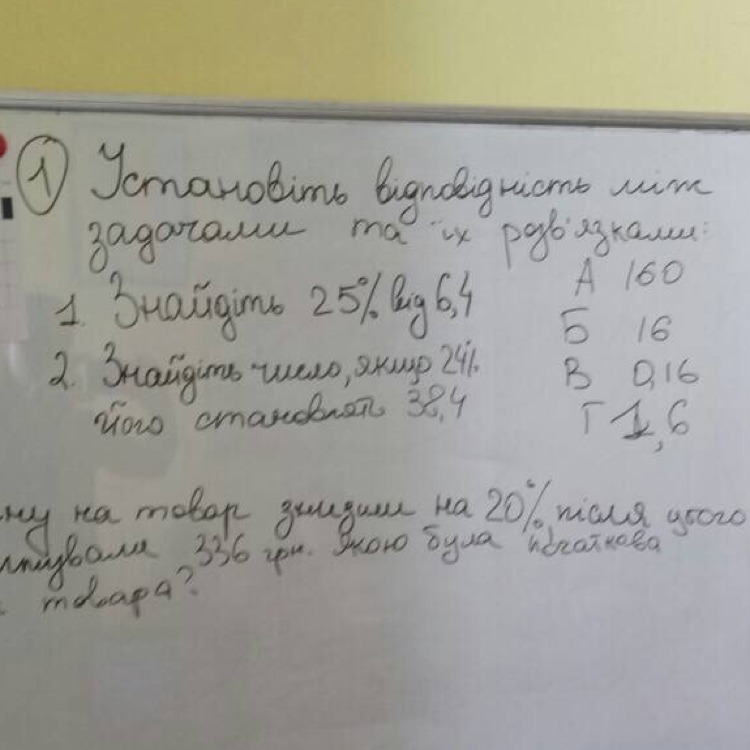 1 Установіть відповідність між
задачами та їх розв'язками:
1. Знайдіть 25% від 6,4 А 160
Б 16
2. Знайдіть число, якщо 24% В 0,16
його становлять 38,4 Г 1,6
ну на товар знизили на 20% після цього
336 грн. Якою була початкова
товара?